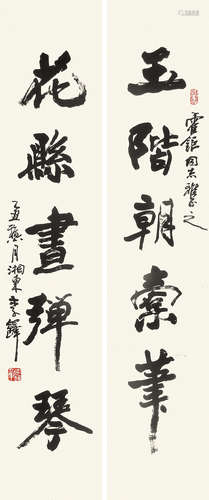 玉階朝索筆
霍鉅同志雅正之
花縣晝彈琴
乙丑龝月湘東李鐸